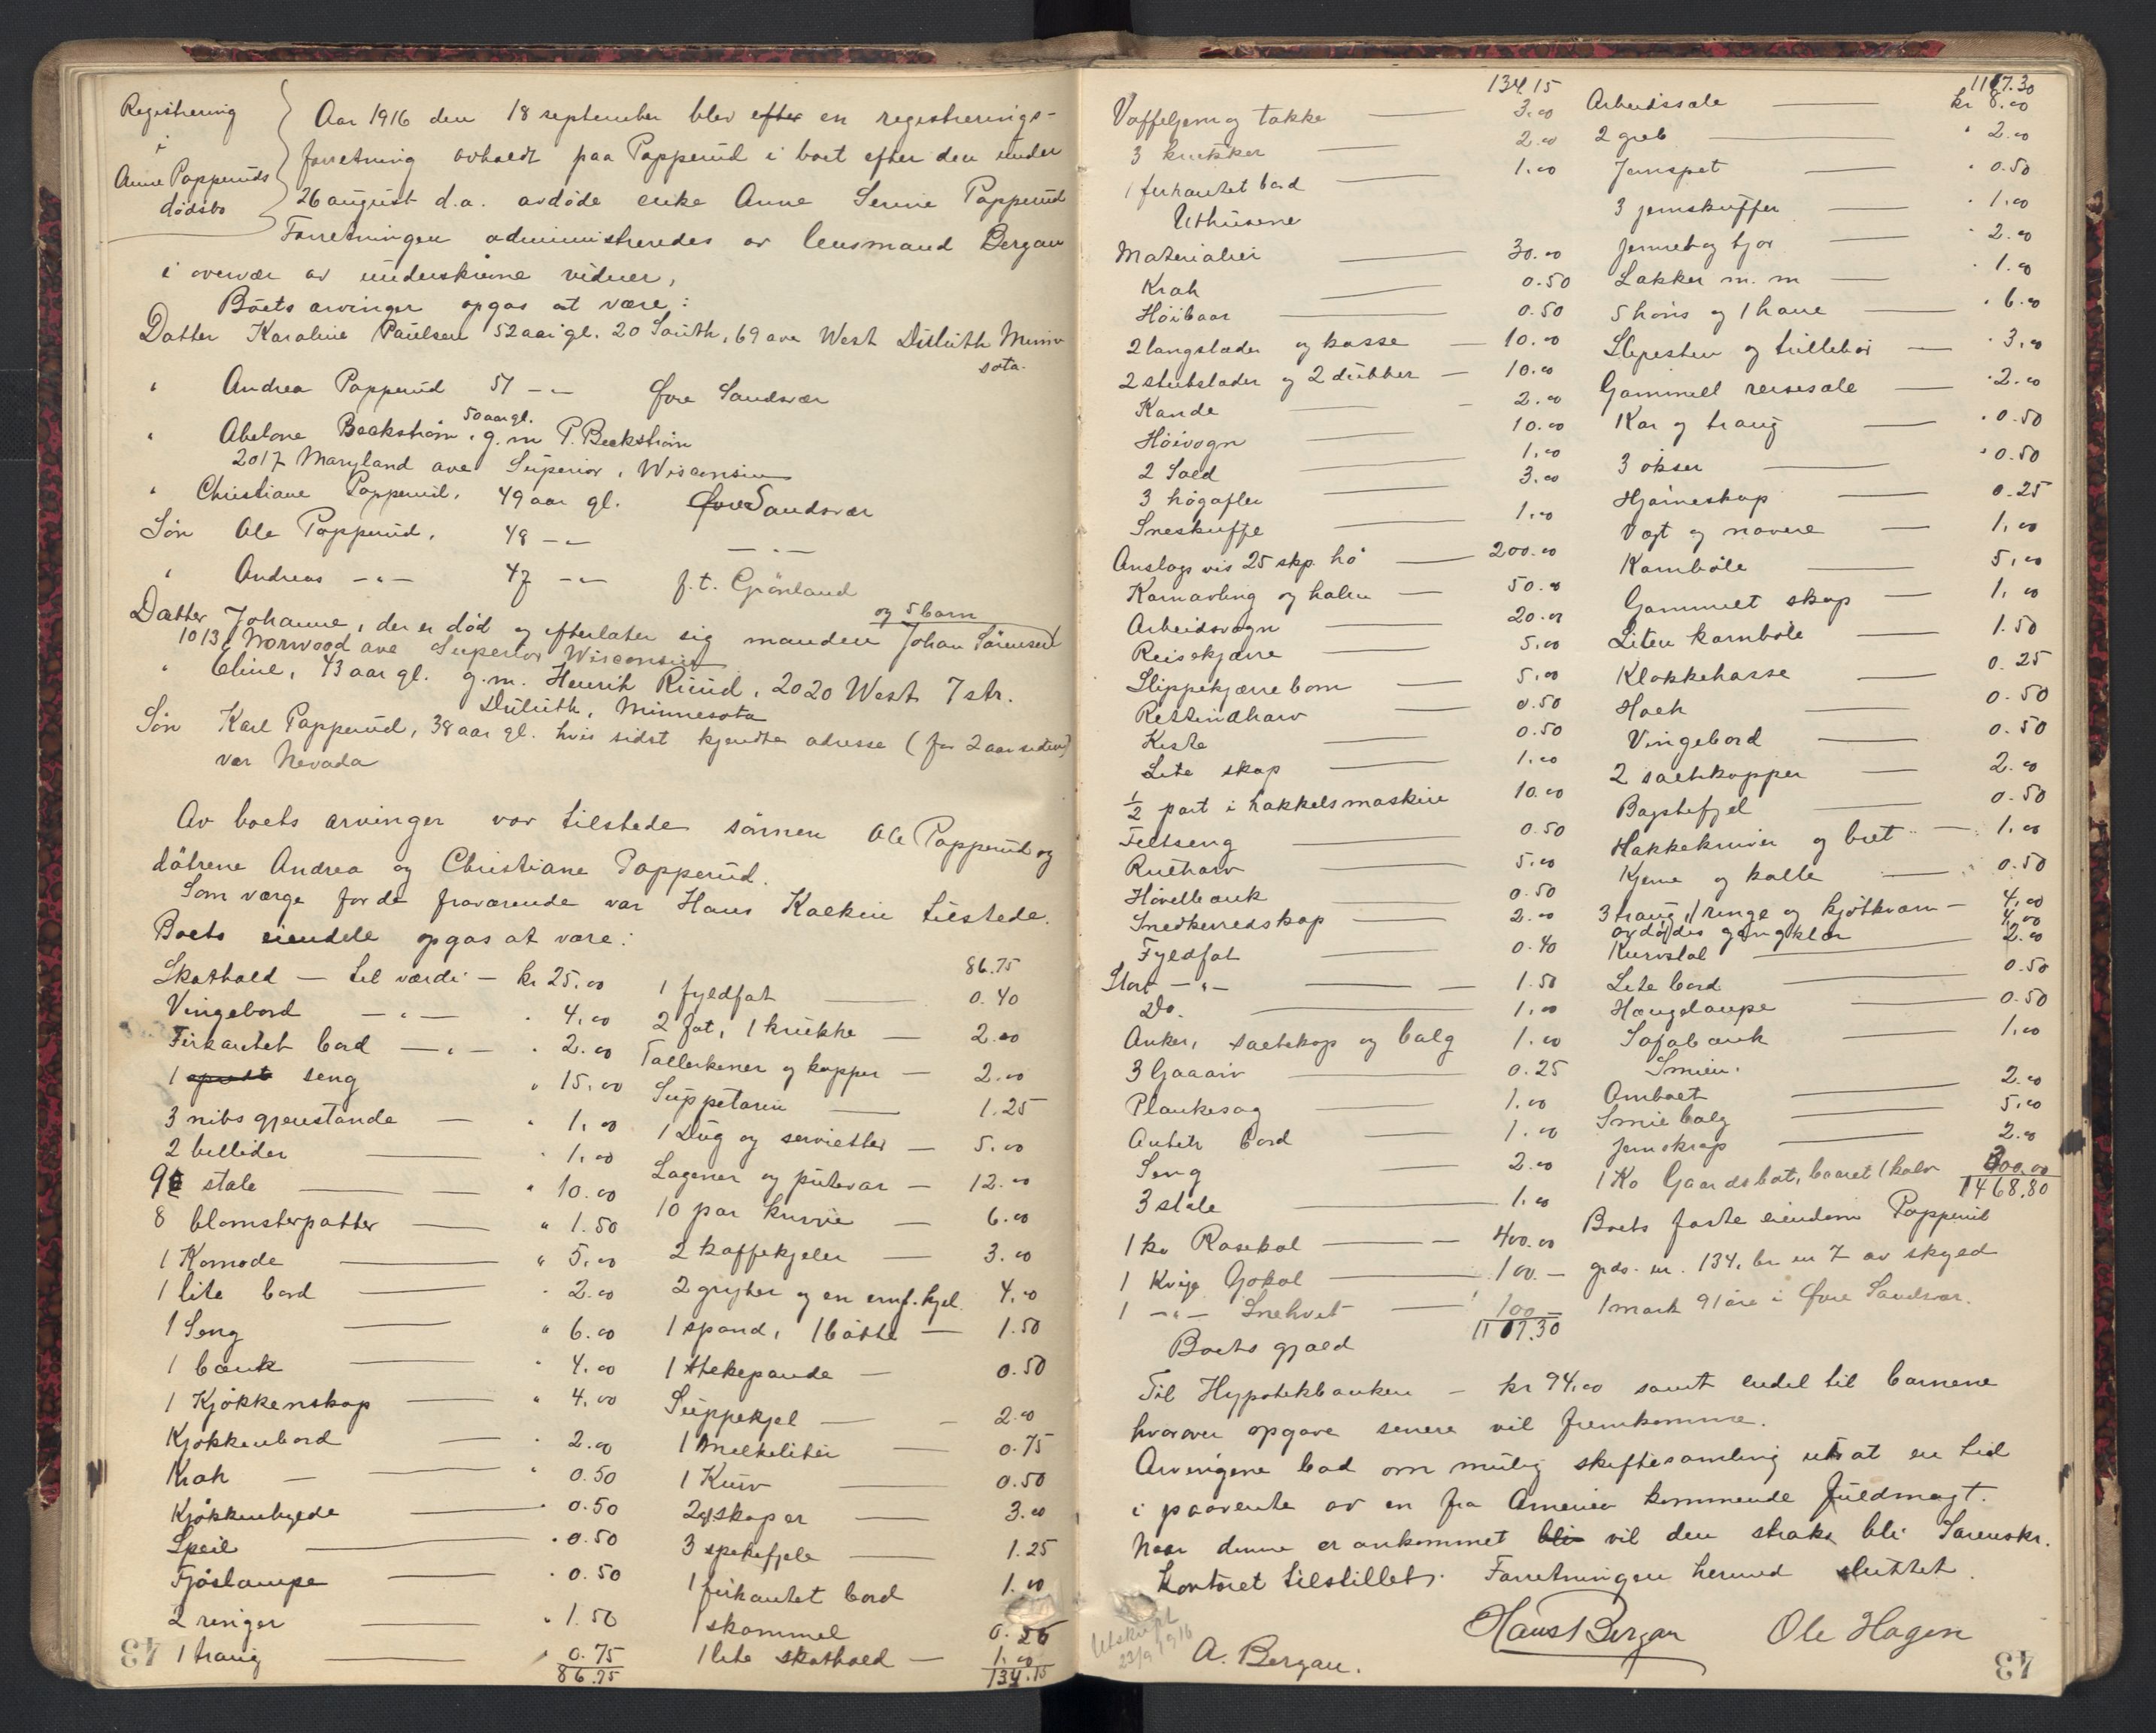 Registrering
i
Anne Papperuds
dödsbo
Aar 1916 den 18 september blev efter en registrerings-
forretning avholdt paa Papperud i boet efter den under
26 august d.a. avdöde enke Anne Serine Papperud
Forretningen administreredes av lensmand Bergan
i overvær av underskrevne vidner,
Boets arvinger opgas at være:
Datter Karoline Paulsen 52 aar gl. 20 South, 69 ave West Duluth Minne
sota.
" Andrea Papperud 51 -"- Øvre Sandsvær
50 aar gl.
" Abelone Beckström, g.m P. Beckström
2017 Maryland ave Superior, Wisconsin
" Christiane Papperud, 49 aar gl. Øvre Sandsvær
Sön Ole Papperud, 48 -"- -"-
" Andreas -"- 47 -"- f.t. Grönland
og 5 barn
Datter Johanne, der er död og efterlater sig manden Johan Sörensen
1013 Norwood ave Superior Wisconsin
" Eline, 43 aar gl. g.m. Henrik Ruud, 2020 West 7 str.
Duluth, Minnesota
Sön Karl Papperud, 38 aar gl. hvis sidst kjendte adresse (for 2 aar siden)
var Nevada
Av boets arvinger var tilstede sönnen Ole Papperud og
dötrene Andrea og Christiane Papperud.
Som værge for de fraværende var Hans Kolkin tilstede.
Boets eiendele opgas at være:
Skathold — til værdi — kr 25.00
Vingebord -"- " 4.00
Firkantet bord -"- " 2.00
1 seng " 15.00
3 nibsgjenstande — " 1.00
2 billeder — " 1.00
9 stole — " 10.00
8 blomsterpotter — " 1.50
1 Komode — " 5.00
1 lite bord — " 2.00
1 Seng — " 6.00
1 bænk — " 4.00
1 Kjökkenskap — " 4.00
Kjökkenbord — " 2.00
Krak — " 0.50
Kjökkenhylde — " 0.50
Speil — " 0.50
Fjöslampe — " 0.50
2 ringer — " 1.50
1 traug — " 0.75
86.75
86.75
1 fyldfat — 0.40
2 fat, 1 krukke — 2.00
Tallerkener og kopper — 2.00
Suppeterin — 1.25
1 Dug og servietter — 5.00
Lagener og putevar — 12.00
10 par knive — 6.00
2 kaffekjeler — 3.00
2 gryter og en emf. kjel. 4.00
1 spand, 1 bötte — 1.50
1 stekepande — 0.50
Suppekjel — 2.00
1 melkeliter — 0.75
1 Kurv — 0.50
2 skaper — 3.00
3 spekefjele — 1.25
1 firkantet bord 1.00
1 skammel 0.25
1 lite skathold — 1.00
134.15
43
134.15
Vaffeljern og takke — 3.00
3 krukker — 2.00
1 firkantet bord — 1.00
Uthusene
Materialier — 30.00
Krak — 0.50
Höibaar — 0.50
2 langslæder og kasse — 10.00
2 stutslæder og 2 dubber — 10.00
Kande — 2.00
Höivogn — 10.00
2 Sold — 1.00
3 högafler — 3.00
Sneskuffe — 1.00
Anslags vis 25 skp. hö — 200.00
Kornavling og halm — 50.00
Arbeidsvogn — 20.00
Reisekjærre — 5.00
Slippekjærre bom — 5.00
Rettindharv — 0.50
Kiste — 0.50
Lite skap — 1.00
½ part i hakkelsmaskin 10.00
Feltseng — 0.50
Rulharv — 5.00
Hövelbænk — 0.50
Snedkerredskap — 2.00
Fyldfat — 0.40
Stort -"- — 1.50
Do. — 1.00
Anker, saltekop og balg 1.00
3 ljaaarv — 0.25
Plankesag — 1.00
Antik bord — 1.00
Seng — 2.00
3 stole — 1.00
1 ko Rosekol — 400.00
1 Kvige Gokol — 100.—
1 -"- Snehvit — 100—
1107.30
Boets gjæld
1107.30
Arbeidssæle — kr 8.00
2 greb — " 2.00
Jernspet — " 0.50
3 jernskuffer — " 1.00
Jernret og tjor — " 2.00
Lakker m. m — " 1.00
5 höns og 1 hane — " 6.00
Slipesten og trillebör — " 3.00
Gammell reisesæle — " 2.00
Kar og traug — " 0.50
3 økser — " 0.50
Hjörneskap — 0.25
Vegt og navere — 1.00
Kornböle — 5.00
Gammelt skap — 1.00
Liten kornböle — 1.50
Klokkekasse — 0.25
Hoek — 0.50
Vingebord — 0.50
2 saltekopper — 2.00
Bagstefjel — 0.50
Hakkekniver og bret — 1.00
Kjerne og kolle — 0.50
3 traug, 1 ringe og kjötkvern — 4.00
avdödes gangklær 4.00
Kurvstol — 2.00
Lite bord — 0.50
Hængelampe — 0.50
Sofabænk — 1.00
Smien.
Ambolt — 2.00
Smiebelg — 5.00
Jernskrap — 2.00
1 Ko Gaardsbot, baaret 1 kalv 300.00
1468.80
Boets faste eiendom Papperud
grds. nr. 134, br. nr 7 av skyld
1 mark 91 øre i Øvre Sandsvær.
Til Hypotekbanken — kr 94.00 samt endel til barnene
hvorover opgave senere vil fremkomme.
Arvingene bad om mulig skiftesamling utsat en tid
i paavente av en fra Amerika kommende fuldmagt.
Naar denne er ankommet vil den straks bli Sorenskr.
kontoret tilstillet. Forretningen hermed sluttet.
Hans Bergan Ole Hagen
A. Bergan.
Utskrift
23/9 1916
43